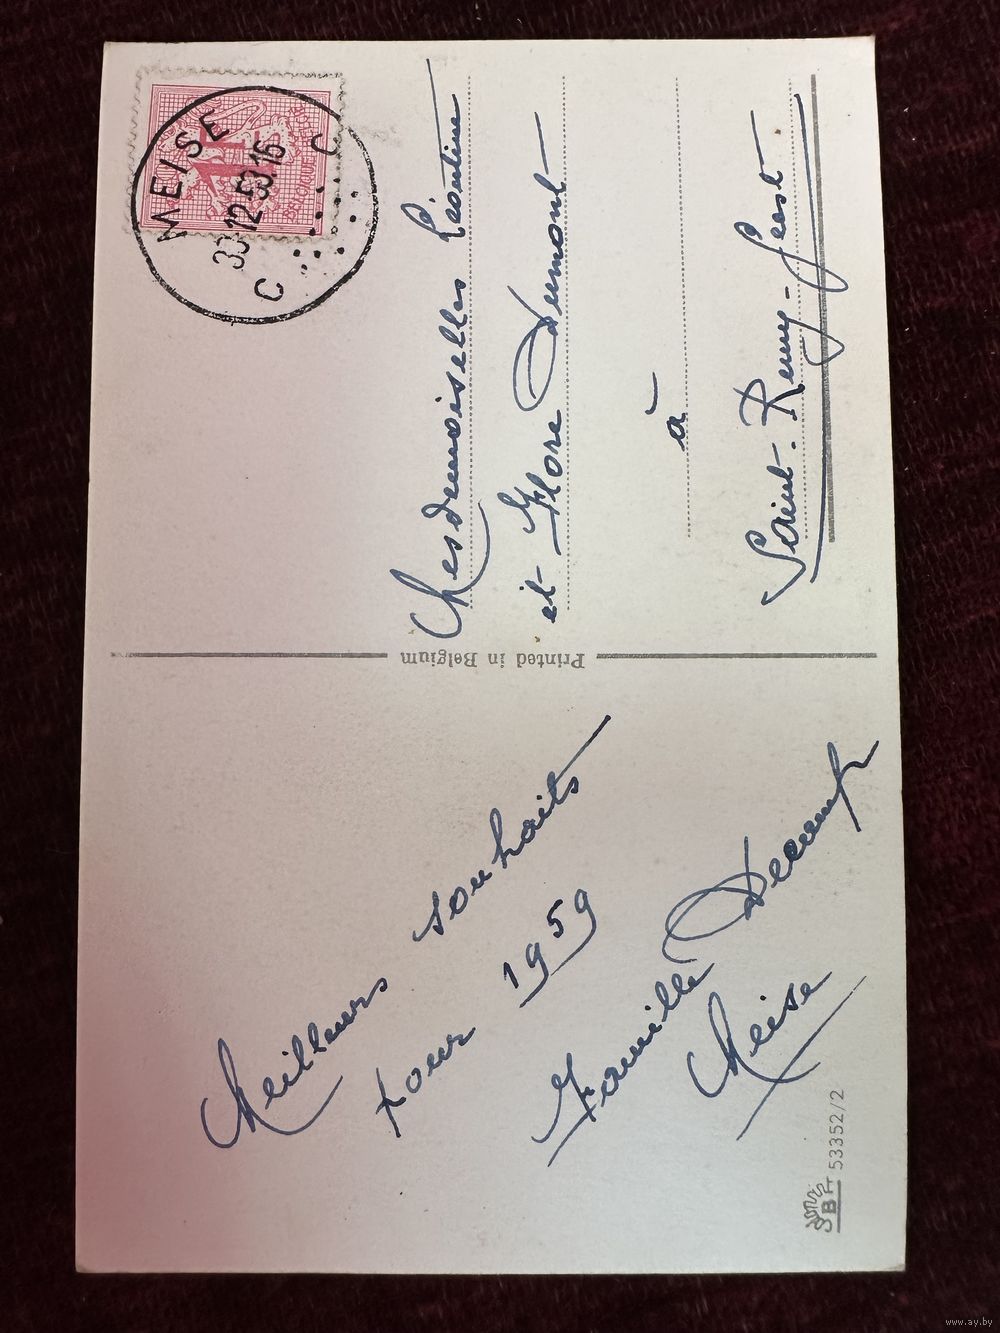 Meilleurs souhaits
pour 1959
Famille Decamp
Meise
BELGIQUE
MEISE
C C
Mesdemoiselles Léontine
et Flore Dumont
à
Saint-Remy-Geest
Printed in Belgium
53352/2
www.ay.by